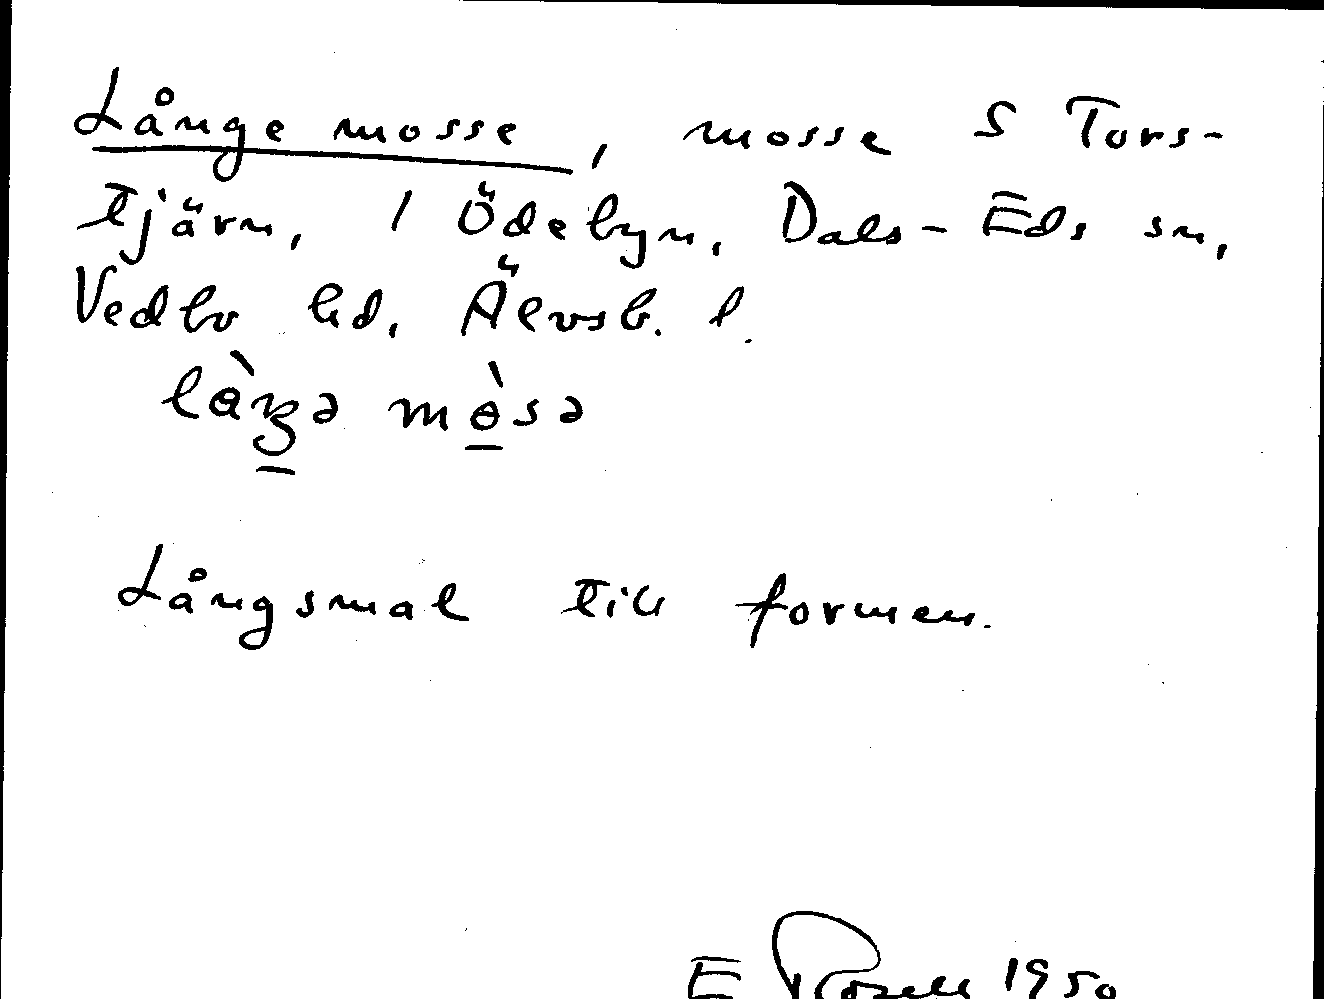 Långe mosse, mosse S Tors-
tjärn, 1 Ödebyn, Dals-Eds sn,
Vedbo hd, Älvsb. l.
Långsmal till formen.
E Rosell 1950